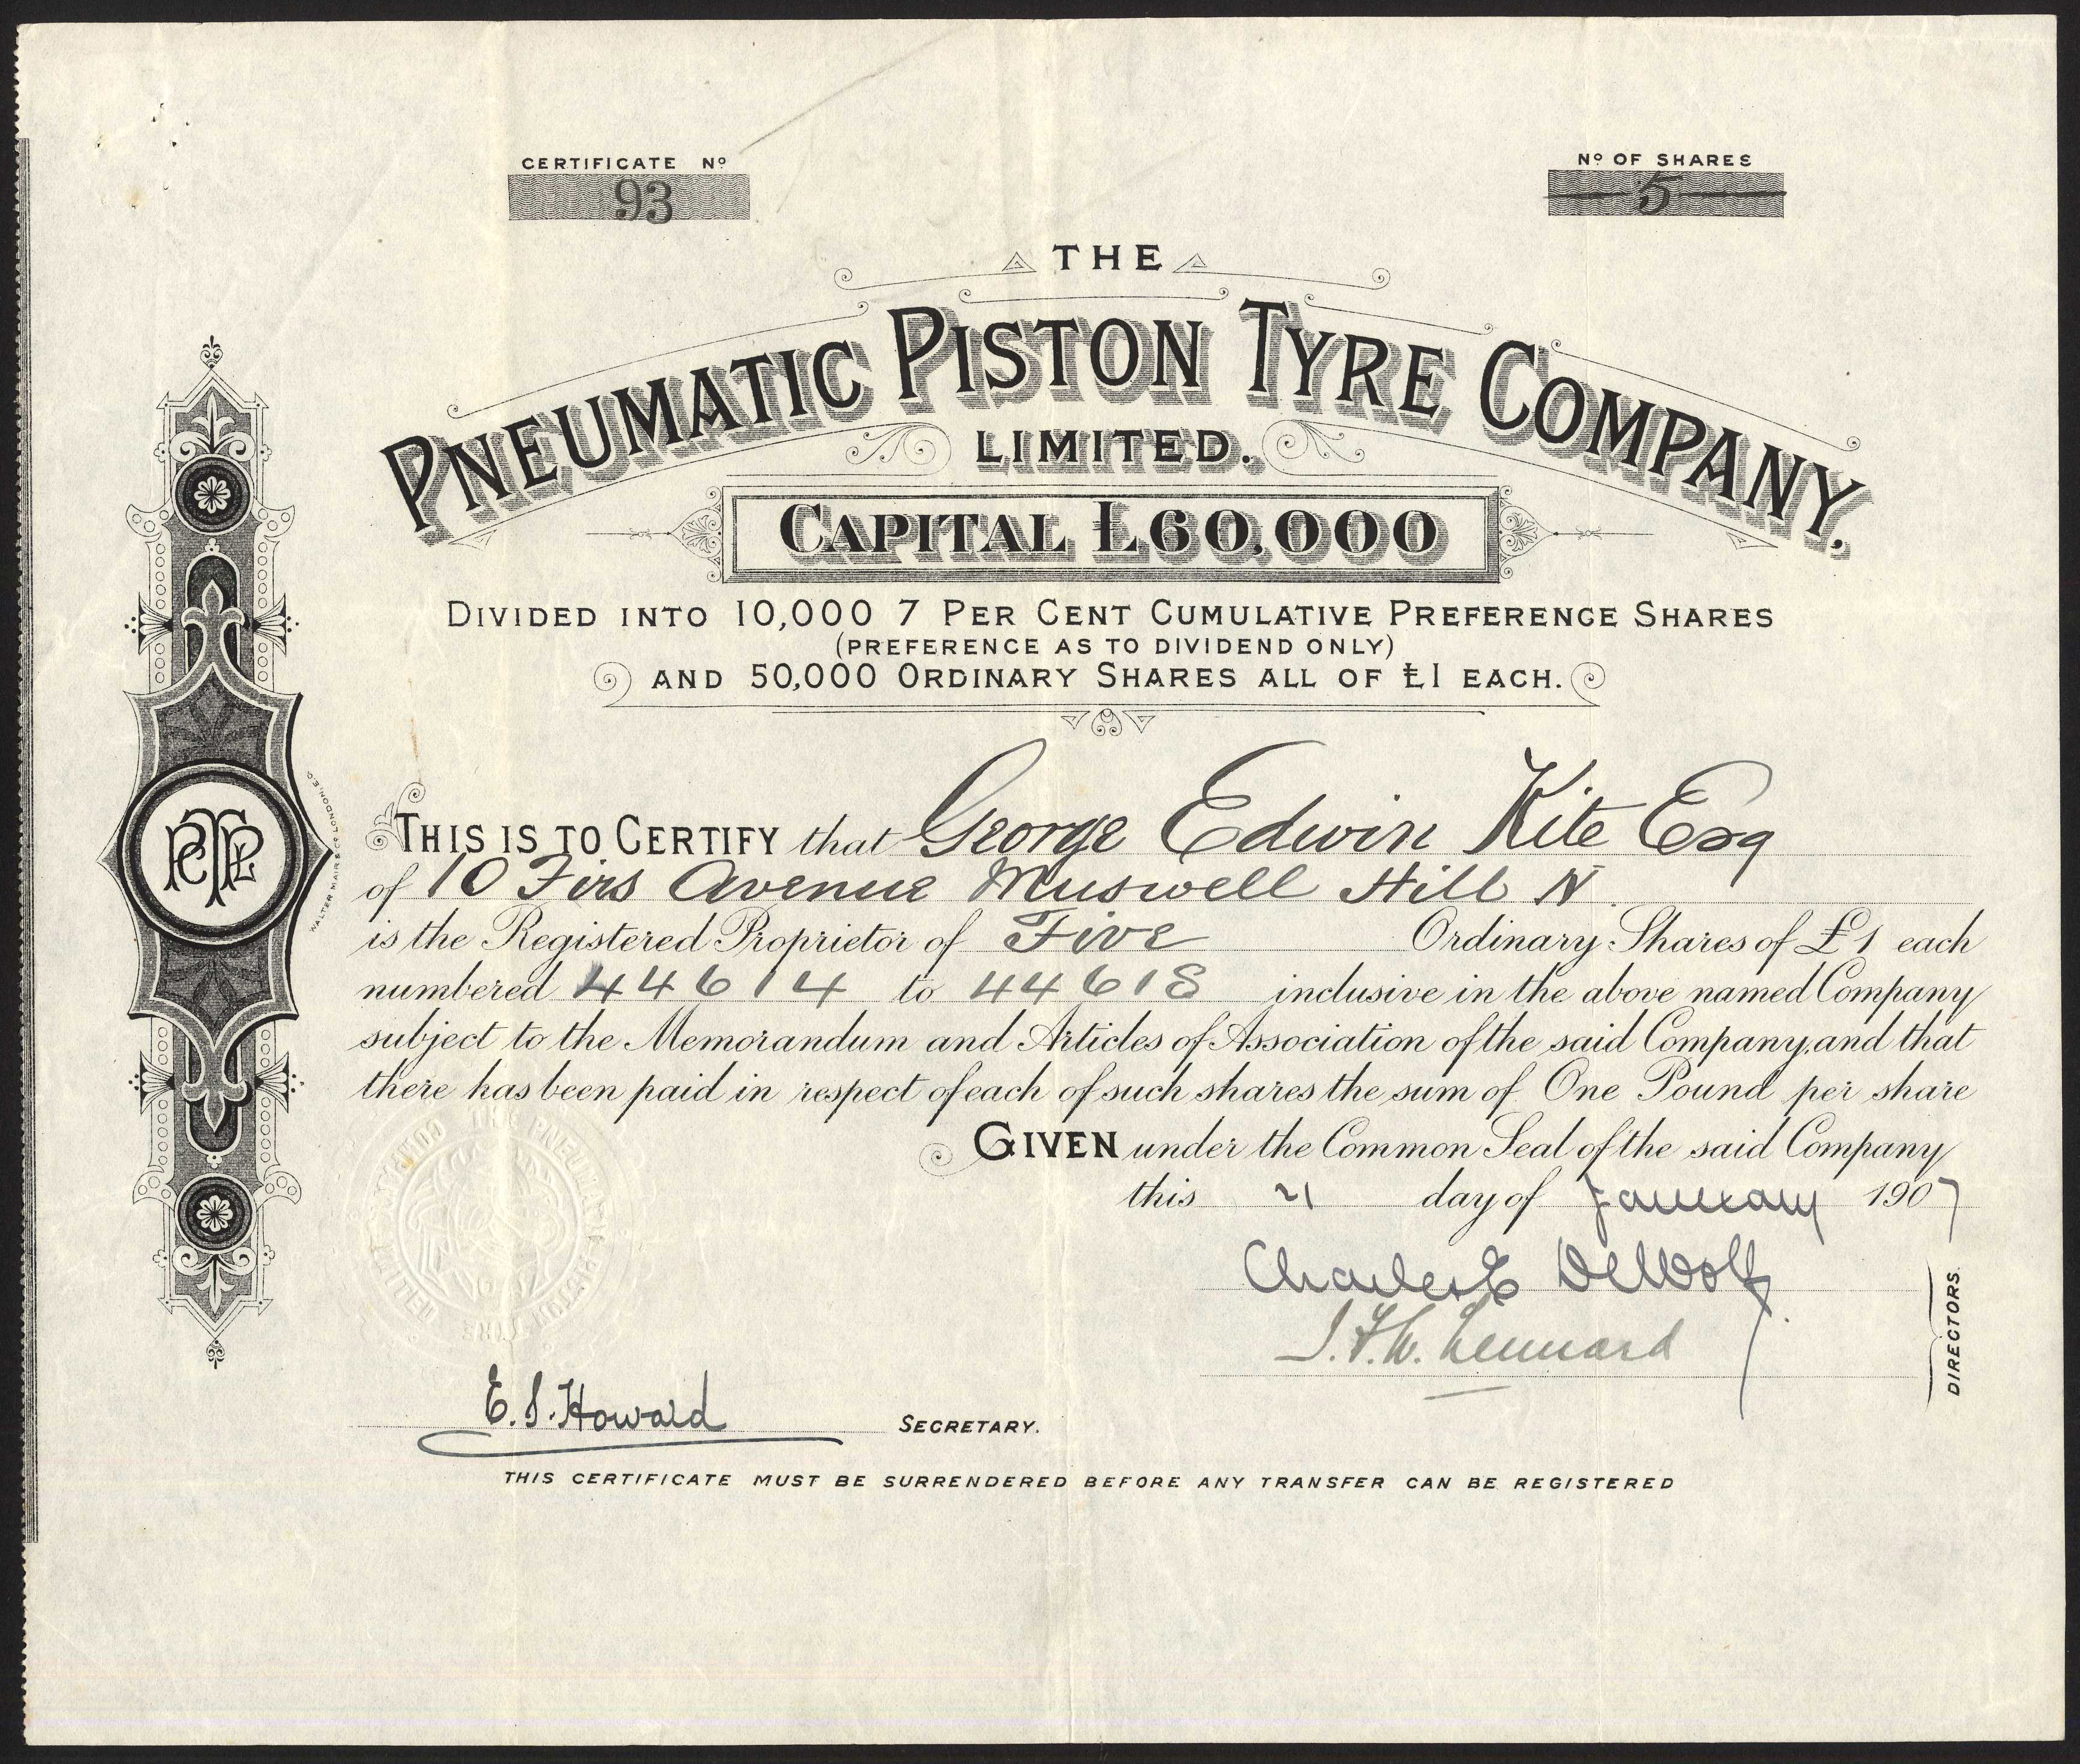 CERTIFICATE Nº
93
Nº OF SHARES
5
THE
PNEUMATIC PISTON TYRE COMPANY,
LIMITED.
CAPITAL £60,000
DIVIDED INTO 10,000 7 PER CENT CUMULATIVE PREFERENCE SHARES
(PREFERENCE AS TO DIVIDEND ONLY)
AND 50,000 ORDINARY SHARES ALL OF £1 EACH.
THIS IS TO CERTIFY that George Edwin Kite Esq
of 10 Firs Avenue Muswell Hill N.
is the Registered Proprietor of Five Ordinary Shares of £1 each
numbered 44614 to 44618 inclusive in the above named Company
subject to the Memorandum and Articles of Association of the said Company, and that
there has been paid in respect of each of such shares the sum of One Pound per share
GIVEN under the Common Seal of the said Company
this 21 day of January 1907
Charles E DeWolf
J.F.W. Lennard
DIRECTORS.
E.S. Howard SECRETARY.
THIS CERTIFICATE MUST BE SURRENDERED BEFORE ANY TRANSFER CAN BE REGISTERED
THE PNEUMATIC PISTON TYRE COMPANY LIMITED